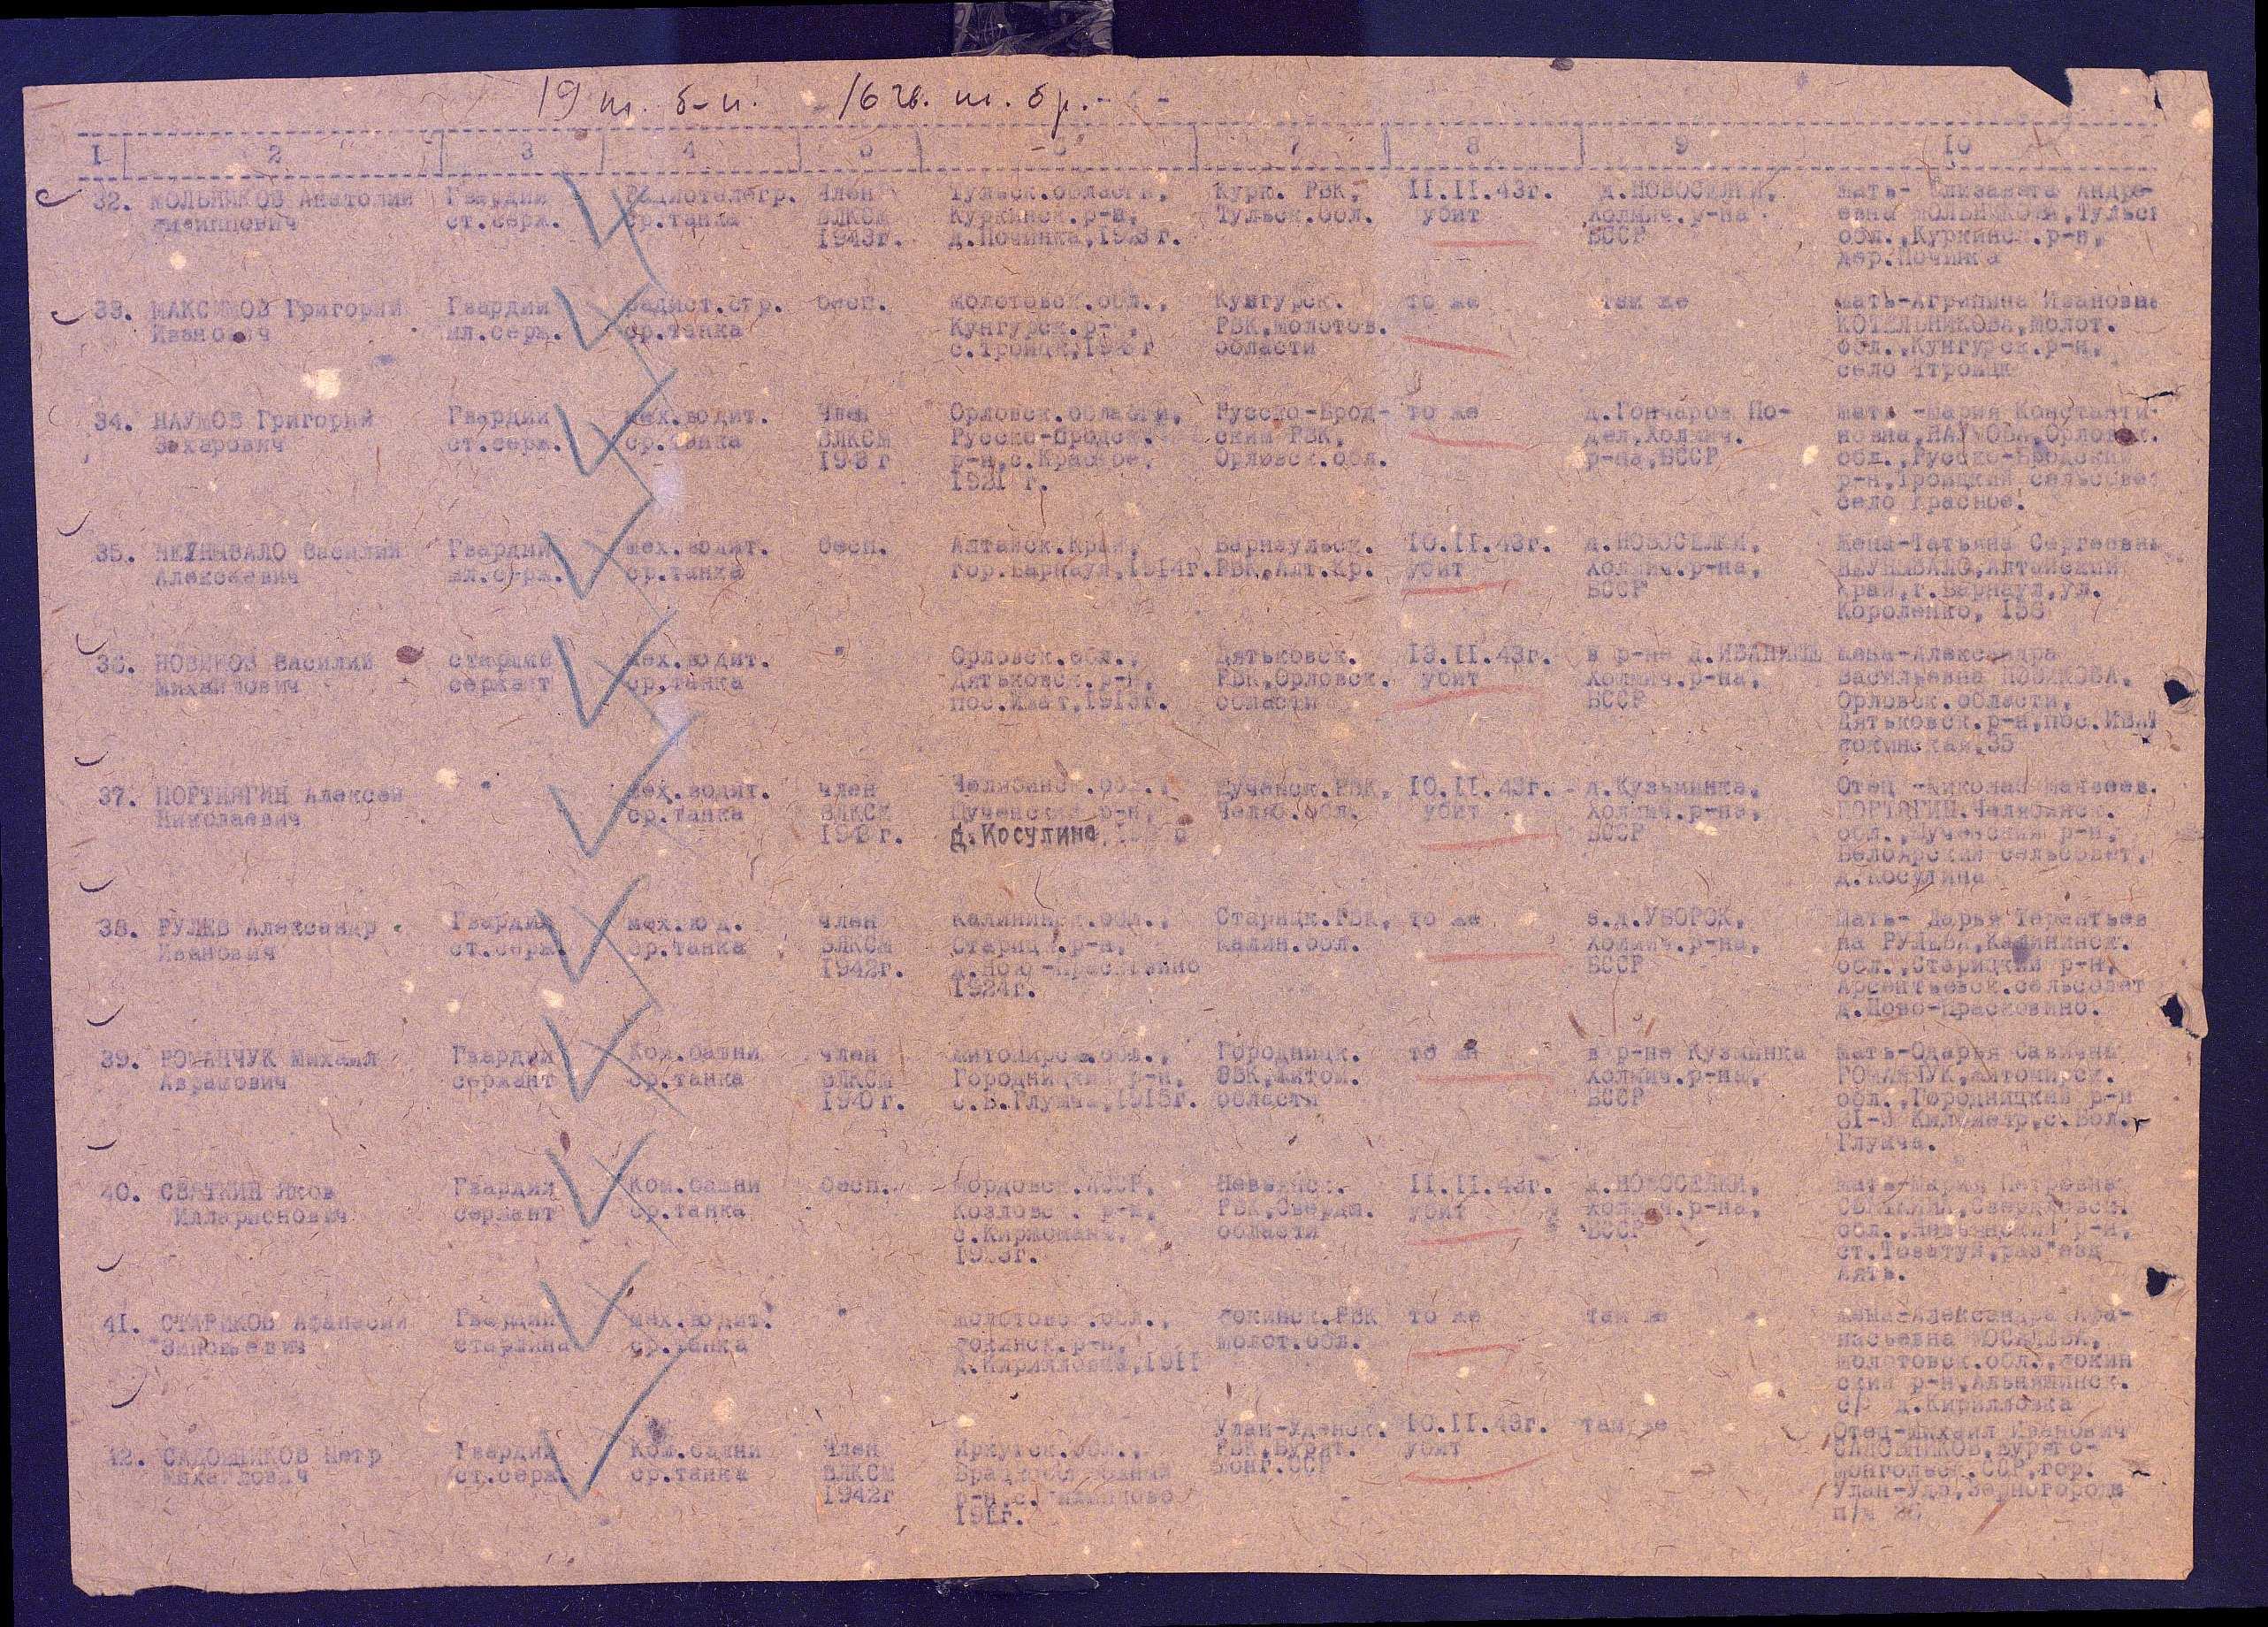 19 т. б-н. 16 гв. т. бр. - 4 -
I 2 3 4 5 6 7 8 9 10
32. МОЛЬНИКОВ Анатолий Гвардии Радиотелегр. Член Тульск.области, Курк. РВК, II.II.43г. д.НОВОСЕЛКИ, мать- Елизавета Андре-
ст.серж. ср.танка ВЛКСМ Куркинск.р-н, Тульск.обл. убит Холмич.р-на евна МОЛЬНИКОВА,Тульск
1943г. д.Починка,1923г. БССР обл.,Куркинск.р-н,
дер.Починка
33. МАКСИМОВ Григорий Гвардии радист.стр. бесп. Молотовск.обл., Кунгурск. то же там же мать-Агрипина Ивановна
Иванович мл.серж. ср.танка Кунгурск.р-н, РВК,Молотов. КОТЕЛЬНИКОВА,Молот.
с.Троицк, области обл.,Кунгурск.р-н,
село
34. НАУМОВ Григорий Гвардии мех.водит. Член Орловск.области, Русско-Брод- то же д.Гончаров По- мать -Мария Константи-
Захарович ст.серж. ср.танка ВЛКСМ Русско-Бродск. ским РВК, дел,Холмич. новна,НАУМОВА,Орловск.
р-н,с.Красное, Орловск.обл. р-на,БССР обл.,Русско-Бродский
1921 г. р-н,Троицкий сельсовет
село Красное.
35. НЕУНЫВАЛО Василий Гвардии мех.водит. бесп. Алтайск.Край, Барнаульск. 10.II.43г. д.НОВОСЕЛКИ, Жена-Татьяна Сергеевна
Алексеевич мл.серж. ср.танка гор.Барнаул,1914г. РВК,Алт.Кр. убит Холмич.р-на, НЕУНЫВАЛО,Алтайский
БССР Край,г.Барнаул,ул.
Короленко, 156
36. НОВИКОВ Василий старший мех.водит. " Орловск.обл., Дятьковск. 13.II.43г. в р-не д.ИВАНИЩЕ жена-Александра
Михайлович сержант ср.танка Дятьковск.р-н, РВК,Орловск. убит Холмич.р-на, Васильевна НОВИКОВА,
области БССР Орловск.области,
Дятьковск.р-н,пос.
37. ПОРТНЯГИН Алексей " мех.водит. член Челябинс.обл., Щучанск.РВК, 10.II.43г. д.Кузьминка, Отец -Николай Матвеев.
Николаевич ср.танка ВЛКСМ Щучанский р-н, Челяб.обл. убит Холмич.р-на, ПОРТЯГИН.Челябинск.
д.Косулина БССР обл.,Щучанский р-н,
Белоярский сельсовет,
д.Косулина
38. РУЛЕВ Александр Гвардии мех.вод. член Калининск.обл., Старицк.РВК, то же в.д.УБОРОК, Мать- Дарья Терентьев
Иванович ст.серж. ср.танка ВЛКСМ Старицк.р-н, Калин.обл. Холмич.р-на, на РУЛЕВА,Калининск.
1942г. БССР обл.,Старицкий р-н,
1924г. Арсентьевск.сельсовет
д.Ново-Красковино.
39. РОМАНЧУК Михаил Гвардии Ком.башни член Житомирск.обл., Городницк. то же в р-не Кузминка мать-Одарья Савична
Аврамович сержант ср.танка ВЛКСМ Городницкий р-н, РВК,Житом. Холмич.р-на, РОМАНЧУК,Житомирск.
1940г. области БССР обл.,Городницкий р-н
Километр,с.Бол.
40. СВЯТКИН Яков Гвардии Ком.башни бесп. Мордовск.АССР, Невьянск. II.II.43г. д.НОВОСЕЛКИ, мать-Мария Петровна
Илларионович сержант ср.танка Козловск. р-н, РВК,Свердл. убит Холмич.р-на, СВЯТКИНА,Свердловск.
области БССР обл.,Невьянский р-н,
ст.Товатуй,раз"езд
Аять.
41. СТАРИКОВ Афанасий Гвардии мех.водит. " Молотовс.обл., Фокинск.РВК то же там же жена-Александра Афа-
Зиновьевич старшина ср.танка Фокинск.р-н, Молот.обл. насьевна
д.Кирилловка,1911 Молотовск.обл.,Фокин
ский р-н,Альняшинск.
с/с д.Кирилловка
42. САДОВНИКОВ Петр Гвардии Ком.башни Член Иркутск.обл., Улан-Уденск. 10.II.43г. там же Отец-Михаил Иванович
Михайлович ст.серж. ср.танка ВЛКСМ РВК,Бурят. убит САДОВНИКОВ,Бурято-
1942г Монг.ССР Монгольск.ССР,гор.
Улан-Удэ,